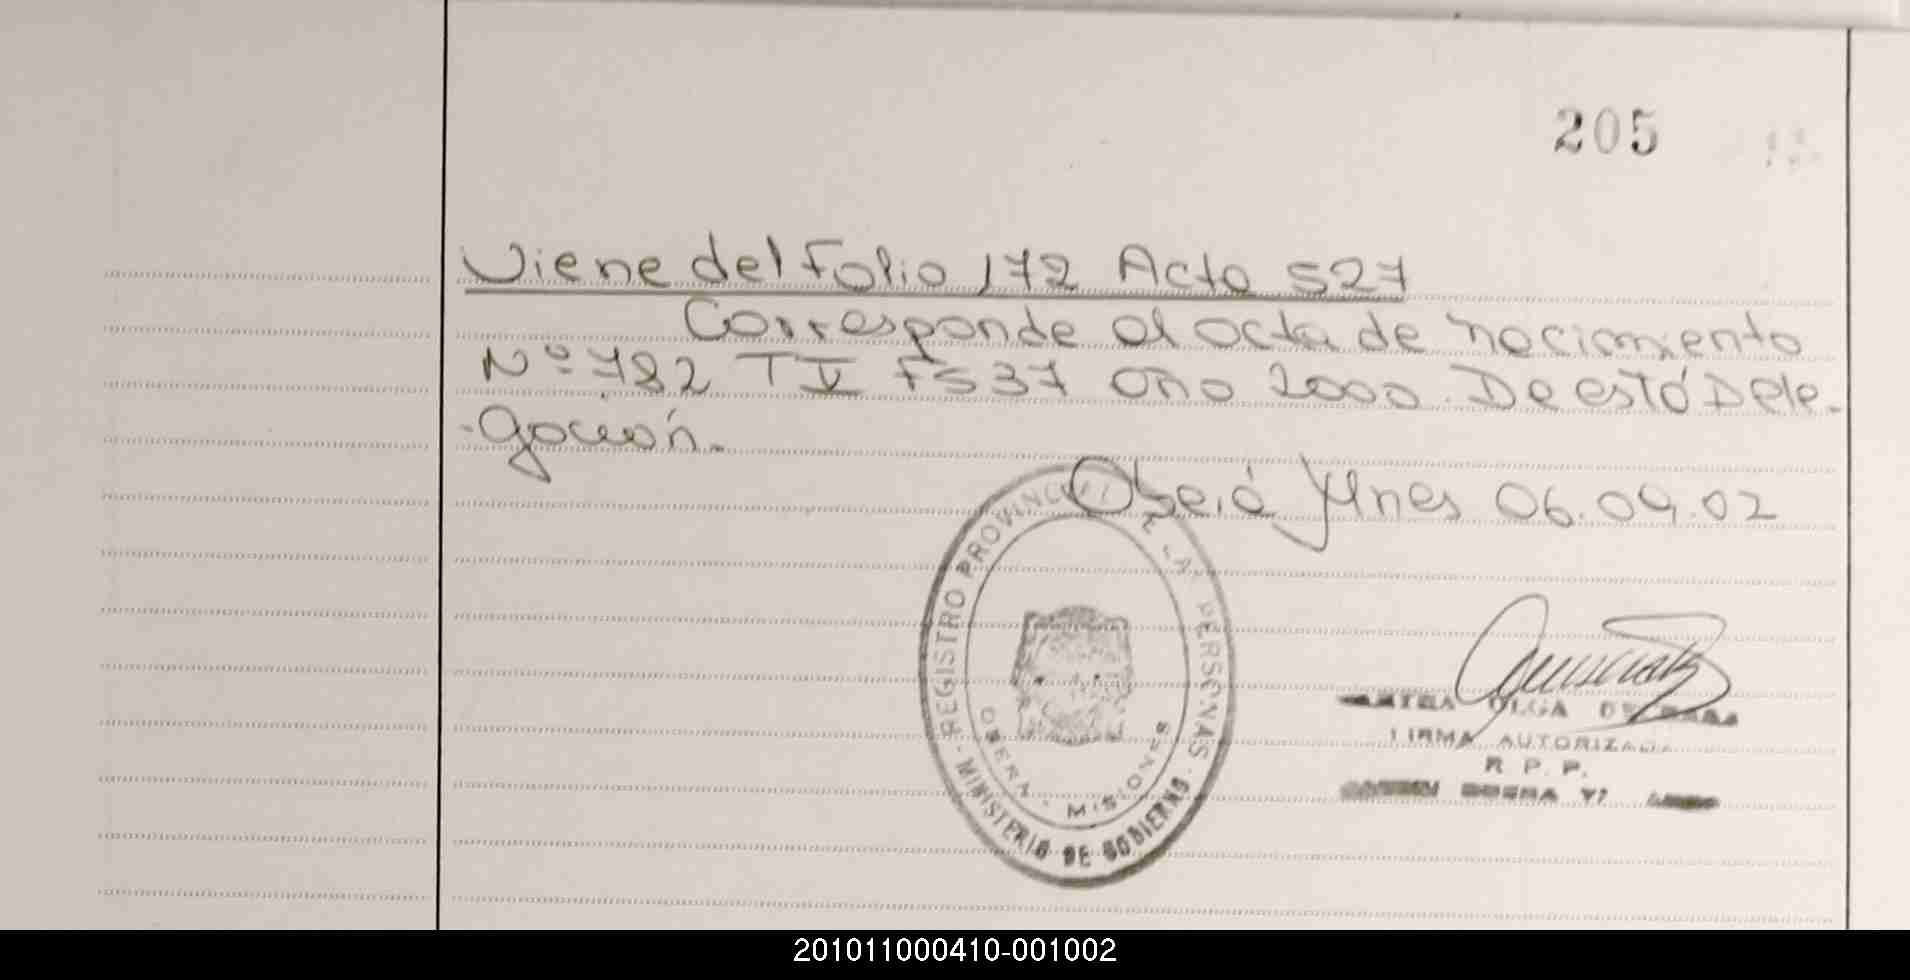 205
Viene del Folio 172 Acta 527
Corresponde al acta de nacimiento
Nº 782 T V Fs 37 año 2000. De está Dele-
-gación.-
Oberá Mnes 06.09.02
REGISTRO PROVINCIAL DE LAS PERSONAS
MINISTERIO DE GOBIERNO
OBERA - MISIONES
OLGA
FIRMA AUTORIZADA
R P. P.
201011000410-001002